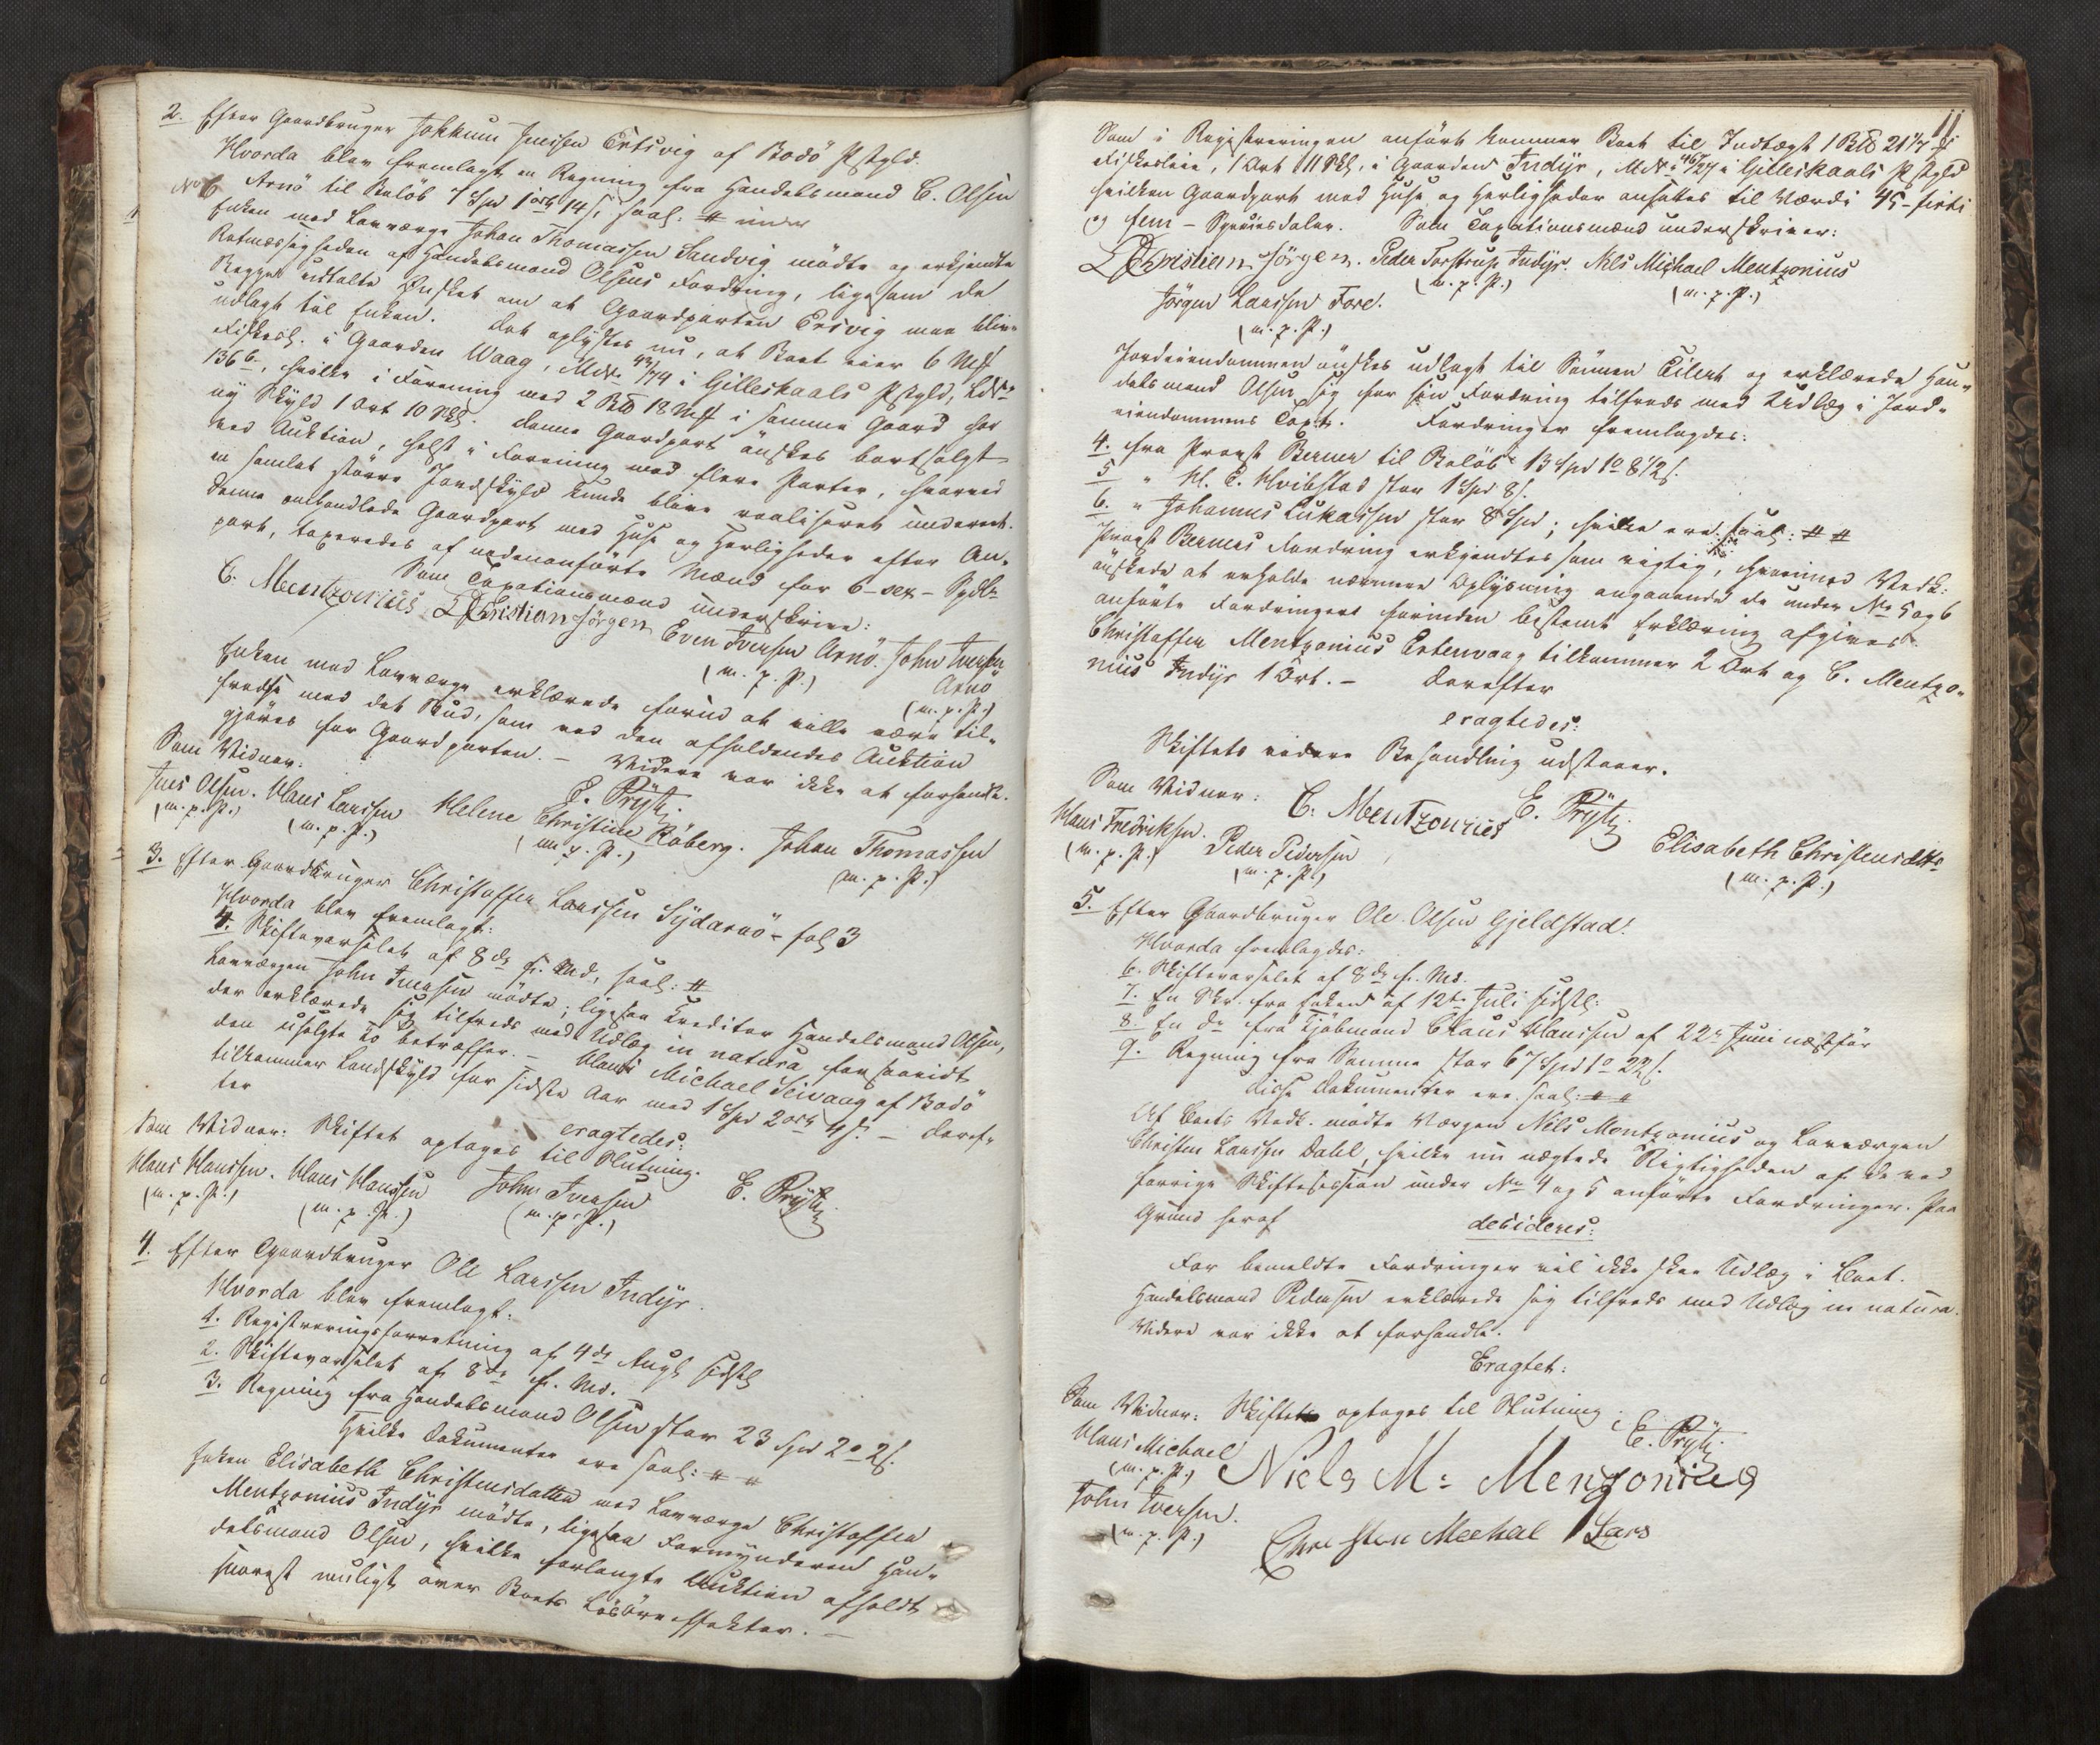 2. Efter Gaardbruger Jokkum Jensen Ertsvig af Bodö Pstgld.
Hvorda blev fremlagt en Regning fra Handelsmand C. Olsen
No 6 Arnö til Beløb 7 Spd 1 ort 14 s, saal: # under
Enken med Lavværge Johan Thomassen Sandvig mödte og erkjendte
Retmæssigheden af Handelsmand Olsens Fordring, ligesom de
Begge udtalte Önsket om at Gaardparten Ersvig maa blive
udlagt til Enken. Det oplystes nu, at Boet eier 6 Mk
Fiskesl. i Gaarden Waag, MNr 43/74 i Gilleskaals Pstgld, LNr
136 b, hvilke i Forening med 2 Bpd 18 Mk i samme Gaard har
ny Skyld 1 Ort 10 Skl. Denne Gaardpart önskes bortsolgt
ved Auktion, helst i Forening med flere Parter, hvorved
en samlet större Jordskyld kunde blive realiseret underet.
Denne omhandlede Gaardpart med Huse og Herligheder efter An-
part, taxeredes af nedenanförte Mænd for 6 - sex - Spdlr
Som Taxationsmænd underskrive:
C. Mentzonius Christian Jörgen Even Iversen Arnö. John Iversen
(m. p. P.) Arnö
(m. p. P.)
Enken med Lavværge erklærede forud at ville være til-
fredse med det Bud, som ved den afholdendes Auktion
gjöres for Gaardparten. - Videre var ikke at forhandle.
Som Vidner: E. Prÿtz
Jens Olsen. Hans Larssen Helene Christine Röberg. Johan Thomassen
(m. p. P.) (m. p. P.) (m. p. P.) (m. p. P.)
3. Efter Gaardbruger Christoffer Larssen Sÿdarnö - fol 3
Hvorda blev fremlagt:
4. Skiftevarselet af 8de f. Md, saal: #
Lavværgen John Iversen mödte; ligesaa Creditor Handelsmand Olsen,
der erklærede sig tilfreds med Udlæg in natura forsaavidt
den usolgte Ko betræffer. - Hans Michael Seivaag af Bodö
tilkommer Landskyld for sidste Aar med 1 Spd 2 ort 4 s. - Deref-
ter
eragtedes:
Som Vidner: Skiftet optages til Slutning.
Hans Hanssen. Hans Hanssen John Iversen E. Prÿtz
(m. p. P.) (m. p. P.) (m. p. P.)
4. Efter Gaardbruger Ole Larssen Indÿr.
Hvorda blev fremlagt:
1. Registreringsforretning af 4de Augt sidstl
2. Skiftevarselet af 8de f. Md.
3. Regning fra Handelsmand Olsen stor 23 Spd 2 o 2 s.
Hvilke Dokumenter ere saal: # #
Enken Elisabeth Christensdatter med Lavværge Christoffer
Mentzonius Indÿr mödte, ligesaa Formynderen Han-
delsmand Olsen, hvilke forlangte Auktion afholdt
snarest muligt over Boets Lösöreeffekter. -
11
Som i Registreringen anfört kommer Boet til Indtægt 1 Bpd 21 1/7 Mk
Fiskesleie, 1 Ort 11 Skl, i Gaarden Indÿr, MNr 46/27 i Gilleskaals Pstgld
hvilken Gaardpart med Huse og Herligheder ansattes til Værdi 45 - firti
og fem - Speciesdaler. Som Taxationsmænd underskriver:
Christian Jörgen. Peder Forstrup Indÿr. Nils Michael Mentzonius
(m. p. P.) (m. p. P.)
Jörgen Larssen Fore.
(m. p. P.)
Jordeiendommen önskes udlagt til Sönnen Eilert og erklærede Han-
delsmand Olsen sig for sin Fordring tilfreds med Udlæg i Jord-
eiendommens Taxt. Fordringer fremlagdes:
4. fra Provst Berner til Beløb 13 Spd 1 o 8 1/2 s.
5 " H. C. Hvibstad stor 1 Spd 8 s.
6. " Johannes Lukassen stor 8 Spd; hvilke ere saal: # #
Provst Berners Fordring erkjendtes som rigtig, hvorimod Vedk:
önskede at erholde nærmere Oplysning angaaende de under No 5 og 6
anförte Fordringer forinden bestemt Erklæring afgives.
Christoffer Mentzonius Estenvaag tilkommer 2 Ort og C. Mentzo-
nius Indÿr 1 Ort. - Derefter
eragtedes:
Skiftets videre Behandling udstaaer.
Som Vidner: C. Mentzonius E. Prÿtz
Hans Fredriksen. Peder Pedersen Elisabeth Christensdtr
(m. p. P.) (m. p. P.) (m. p. P.)
5. Efter Gaardbruger Ole Olsen Gjeldstad.
Hvorda fremlagdes:
6. Skiftevarselet af 8de f. Md.
7. En Skr. fra Enken af 12te Juli sidstl:
8. En do fra Kjöbmand Claus Hanssen af 22de Juni næstfør
9. Regning fra Samme stor 67 Spd 1 o 22 s.
disse Dokumenter ere saal: # #
Af Boets Vedk. mödte Værgen Nils Mentzonius og Lavværgen
Christen Larssen Dahl, hvilke nu nægtede Rigtigheden af de ved
forrige Skiftesession under No 4 og 5 anförte Fordringer. Paa
Grund heraf
decideres:
For bemeldte Fordringer vil ikke skee Udlæg i Boet.
Handelsmand Pedersen erklærede sig tilfreds med Udlæg in natura.
Videre var ikke at forhandle.
Eragtet:
Som Vidner: Skiftet optages til Slutning.
Hans Michael E. Prÿtz
(m. p. P.) Niels M: Menzonius
John Iversen.
(m. p. P.) Christen Meekal Lars